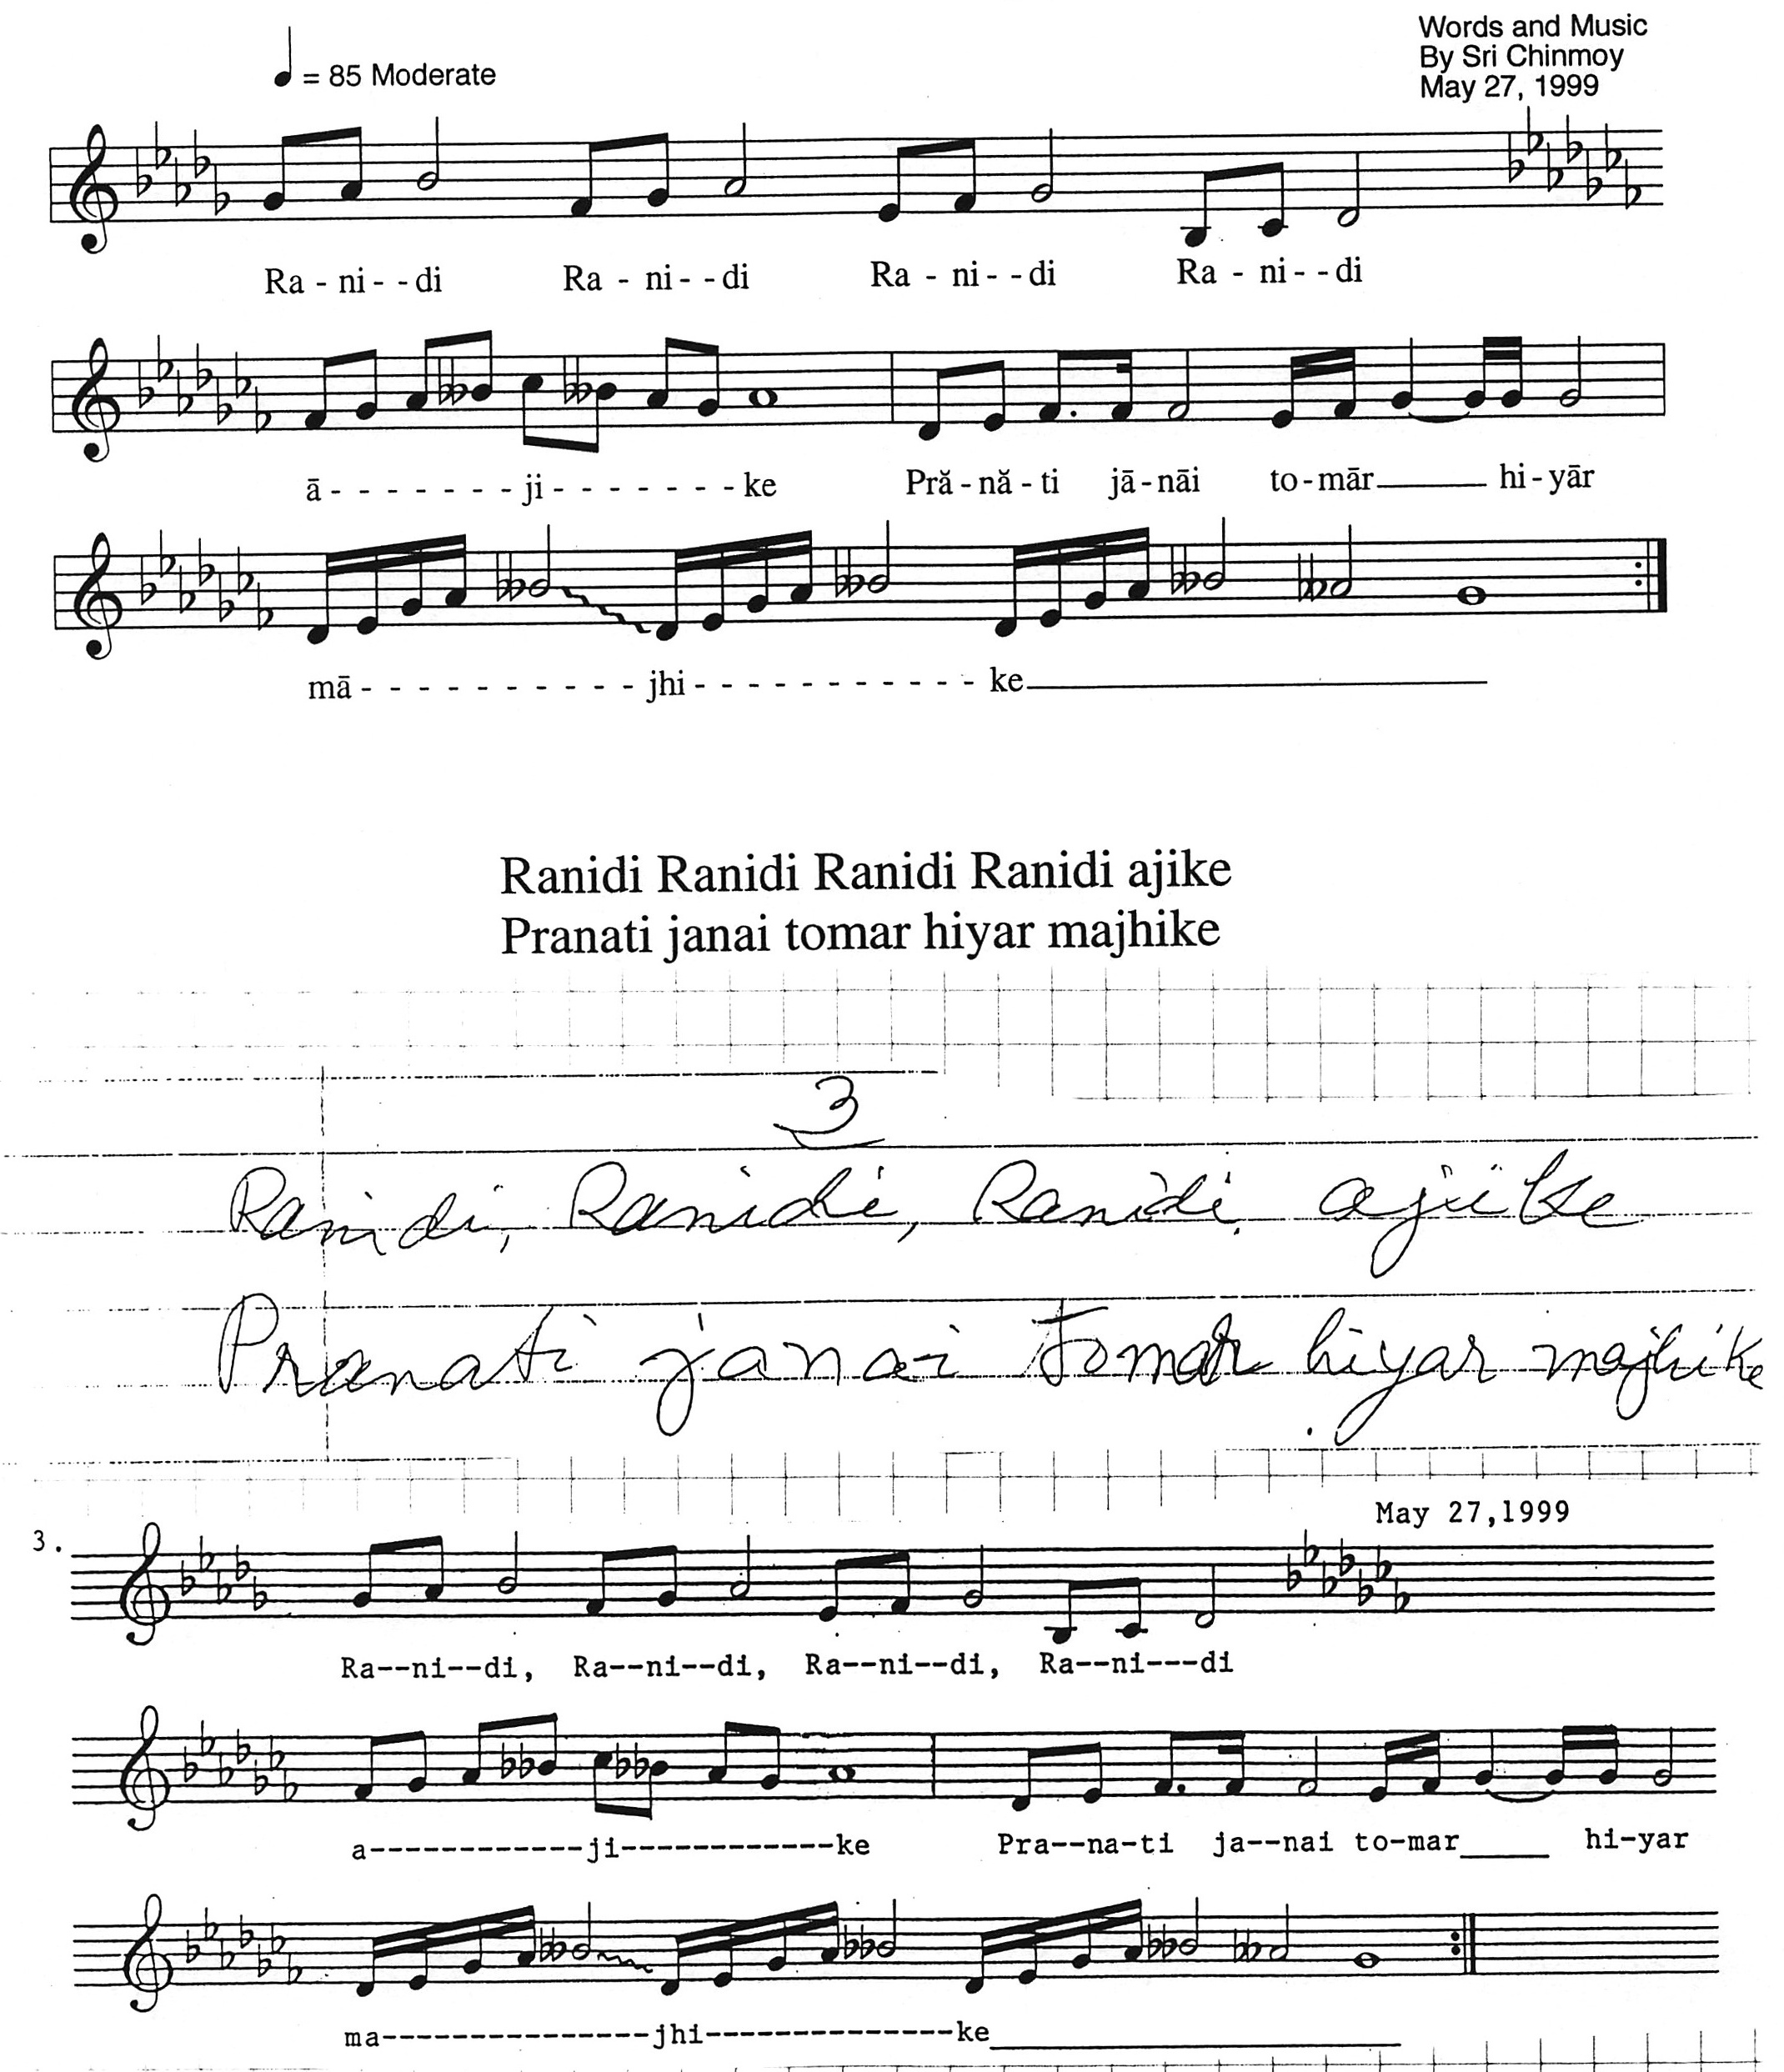 ♩ = 85 Moderate
Words and Music
By Sri Chinmoy
May 27, 1999
Ra - ni - - di Ra - ni - - di Ra - ni - - di Ra - ni - - di
ā - - - - - - - ji - - - - - - - ke Pră - nă - ti jā - nāi to - mār_____ hi - yār
mā - - - - - - - - - - jhi - - - - - - - - - - ke__________
Ranidi Ranidi Ranidi Ranidi ajike
Pranati janai tomar hiyar majhike
3
Ranidi, Ranidi, Ranidi, ajike
Pranati janai tomar hiyar majhike
May 27,1999
3.
Ra--ni--di, Ra--ni--di, Ra--ni--di, Ra--ni---di
a------------ji------------ke Pra--na-ti ja--nai to-mar_____ hi-yar
ma---------------jhi--------------ke__________